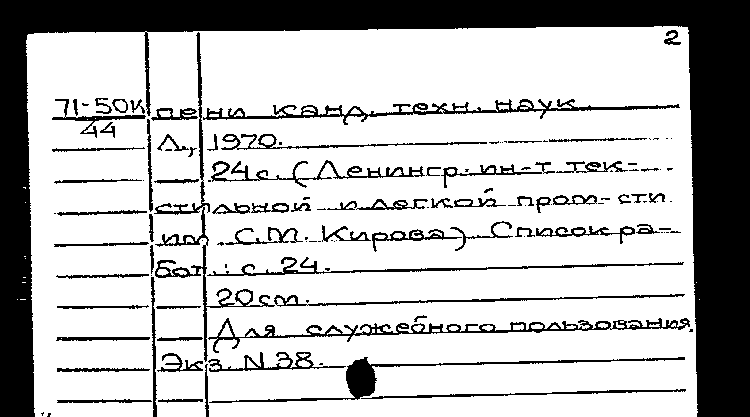 2
71-50К пени канд. техн. наук.
44
Л., 1970.
24 с. (Ленингр. ин-т тек-
стильной и легкой пром-сти
им С.М. Кирова) Список ра-
бот.: с. 24.
20 см.
Для служебного пользования.
Экз. N 38.